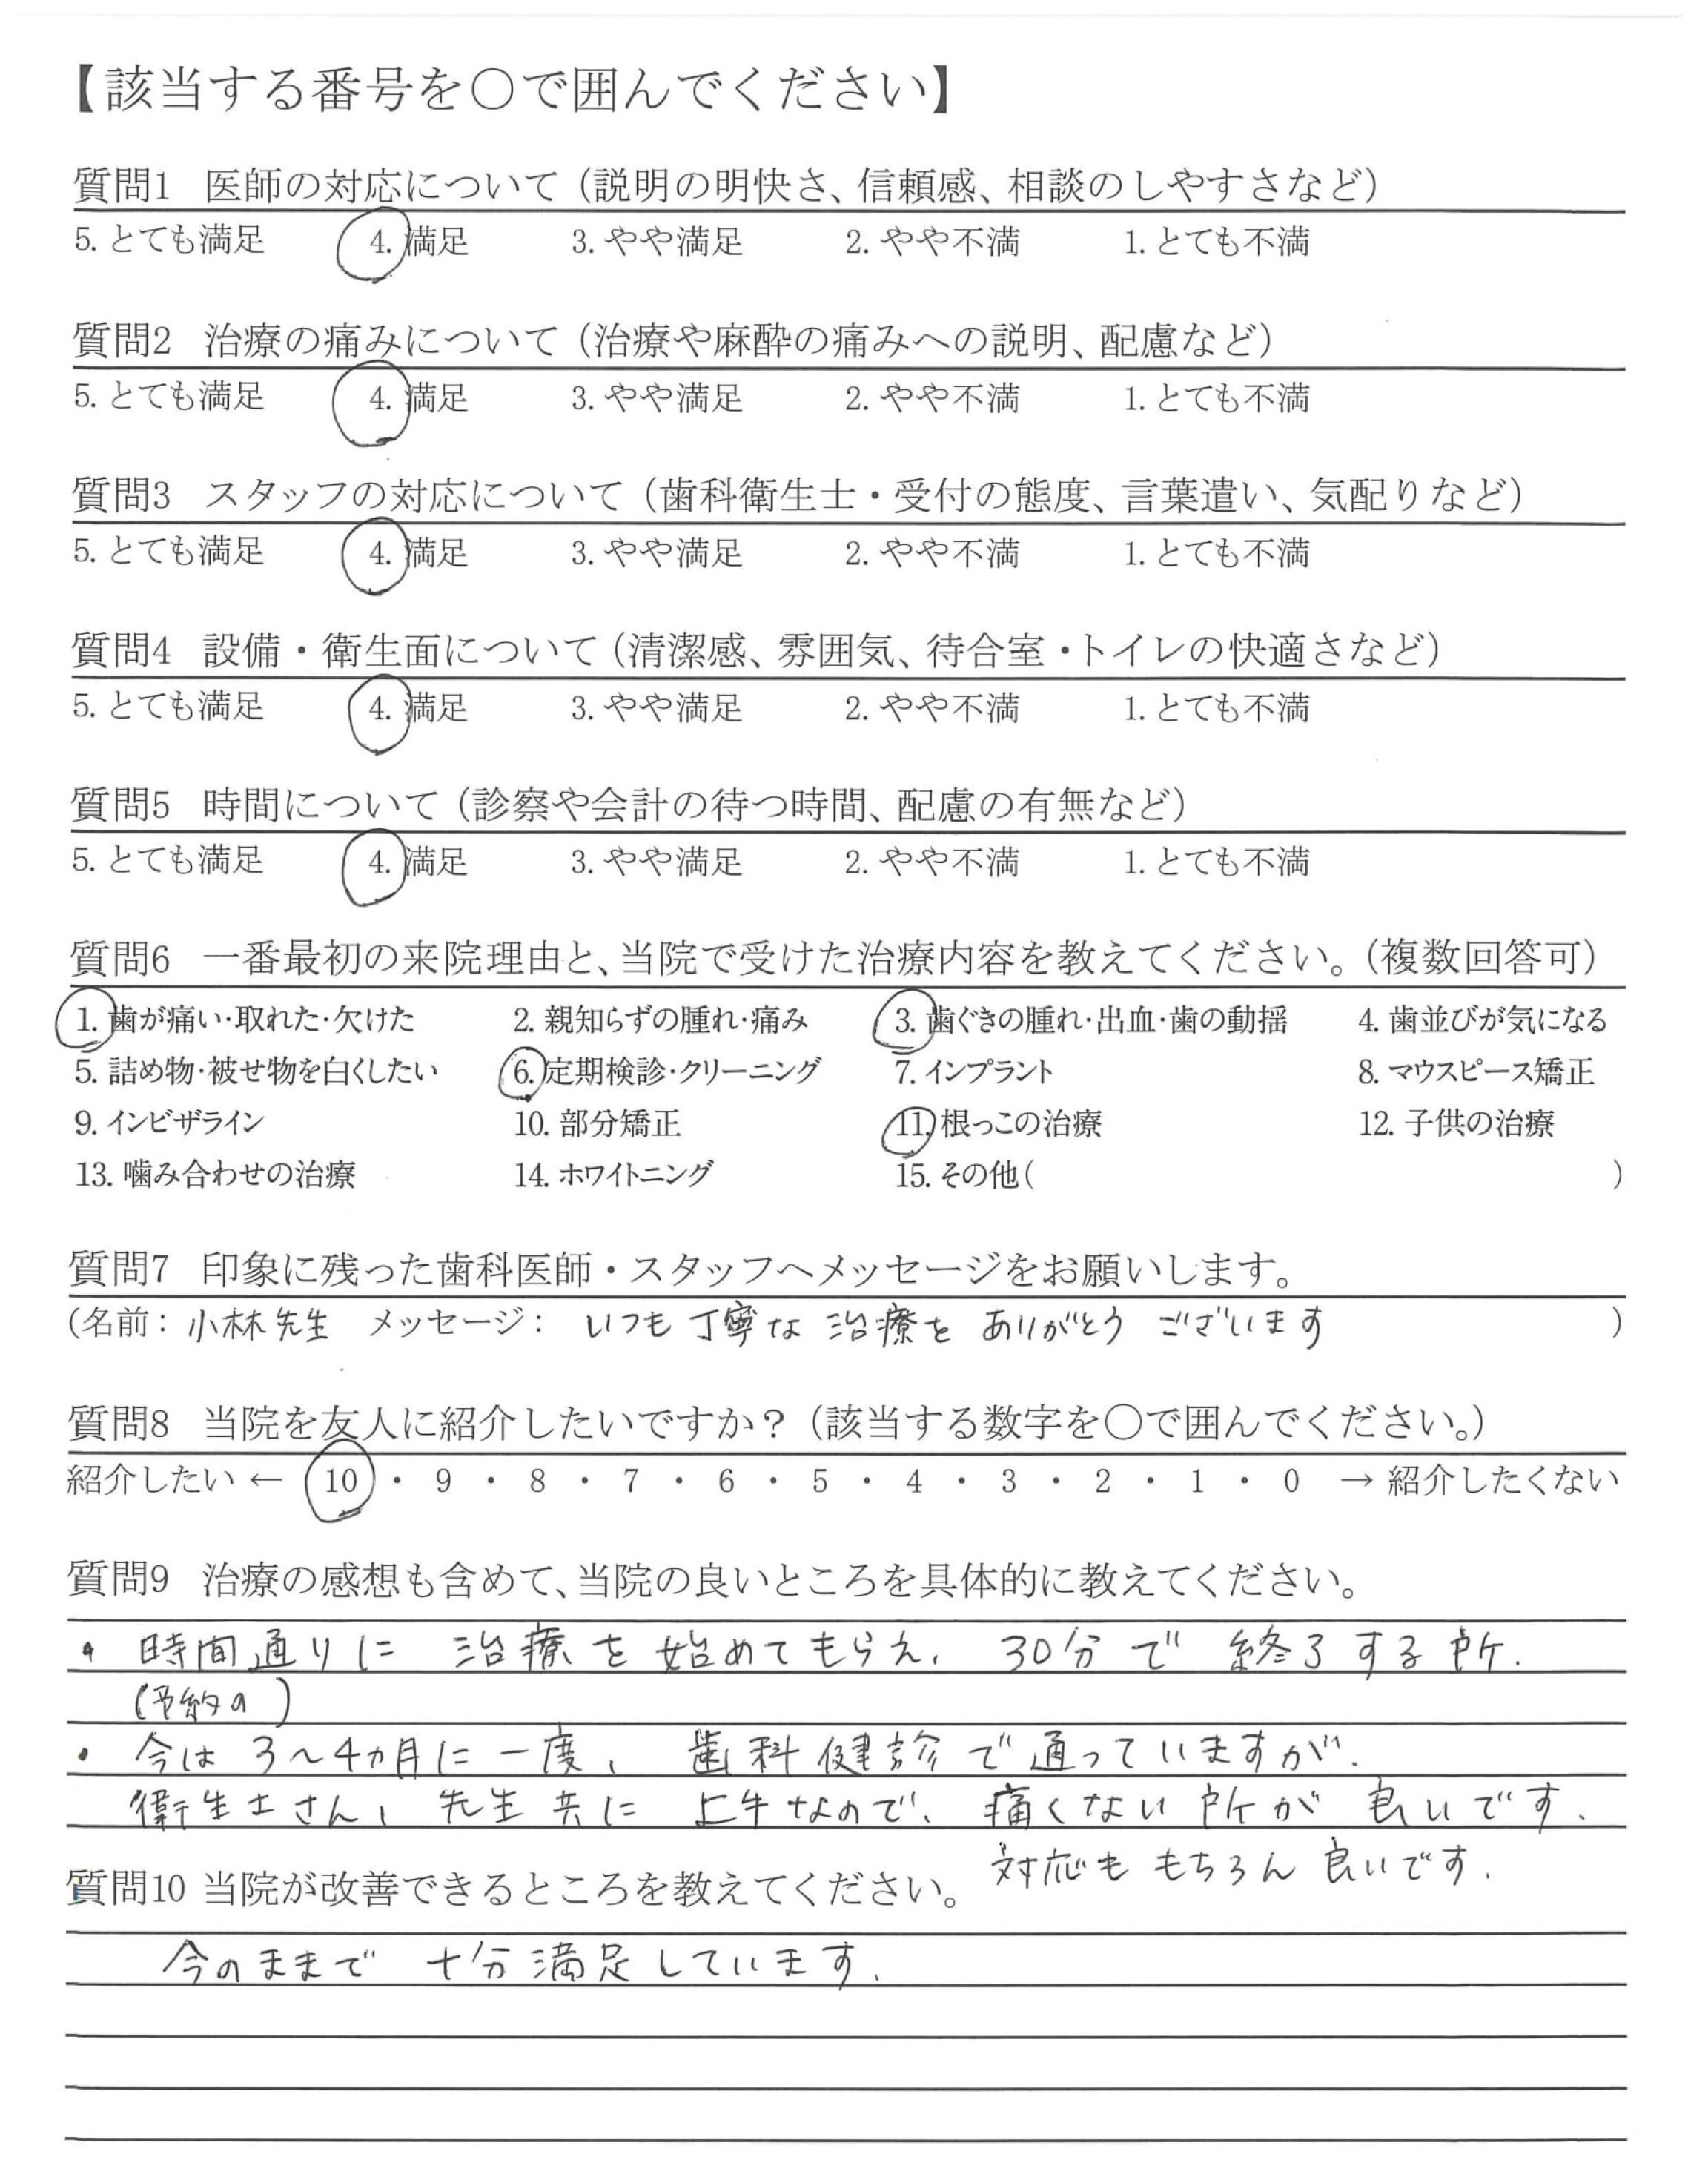 【該当する番号を〇で囲んでください】
質問1 医師の対応について（説明の明快さ、信頼感、相談のしやすさなど）
5. とても満足 4. 満足 3. やや満足 2. やや不満 1. とても不満
質問2 治療の痛みについて（治療や麻酔の痛みへの説明、配慮など）
5. とても満足 4. 満足 3. やや満足 2. やや不満 1. とても不満
質問3 スタッフの対応について（歯科衛生士・受付の態度、言葉遣い、気配りなど）
5. とても満足 4. 満足 3. やや満足 2. やや不満 1. とても不満
質問4 設備・衛生面について（清潔感、雰囲気、待合室・トイレの快適さなど）
5. とても満足 4. 満足 3. やや満足 2. やや不満 1. とても不満
質問5 時間について（診察や会計の待つ時間、配慮の有無など）
5. とても満足 4. 満足 3. やや満足 2. やや不満 1. とても不満
質問6 一番最初の来院理由と、当院で受けた治療内容を教えてください。（複数回答可）
1. 歯が痛い・取れた・欠けた 2. 親知らずの腫れ・痛み 3. 歯ぐきの腫れ・出血・歯の動揺 4. 歯並びが気になる
5. 詰め物・被せ物を白くしたい 6. 定期検診・クリーニング 7. インプラント 8. マウスピース矯正
9. インビザライン 10. 部分矯正 11. 根っこの治療 12. 子供の治療
13. 噛み合わせの治療 14. ホワイトニング 15. その他( )
質問7 印象に残った歯科医師・スタッフへメッセージをお願いします。
（名前： 小林先生 メッセージ： いつも丁寧な 治療を ありがとう ございます ）
質問8 当院を友人に紹介したいですか？（該当する数字を〇で囲んでください。）
紹介したい ← 10 ・ 9 ・ 8 ・ 7 ・ 6 ・ 5 ・ 4 ・ 3 ・ 2 ・ 1 ・ 0 → 紹介したくない
質問9 治療の感想も含めて、当院の良いところを具体的に教えてください。
・ 時間通りに 治療を始めてもらえ、 30分で 終了する所.
(予約の)
・ 今は 3〜4ヵ月に一度、 歯科健診で通っていますが、
衛生士さん、先生共に 上手なので、 痛くない所が 良いです.
対応も もちろん 良いです.
質問10 当院が改善できるところを教えてください。
今のままで 十分満足しています.